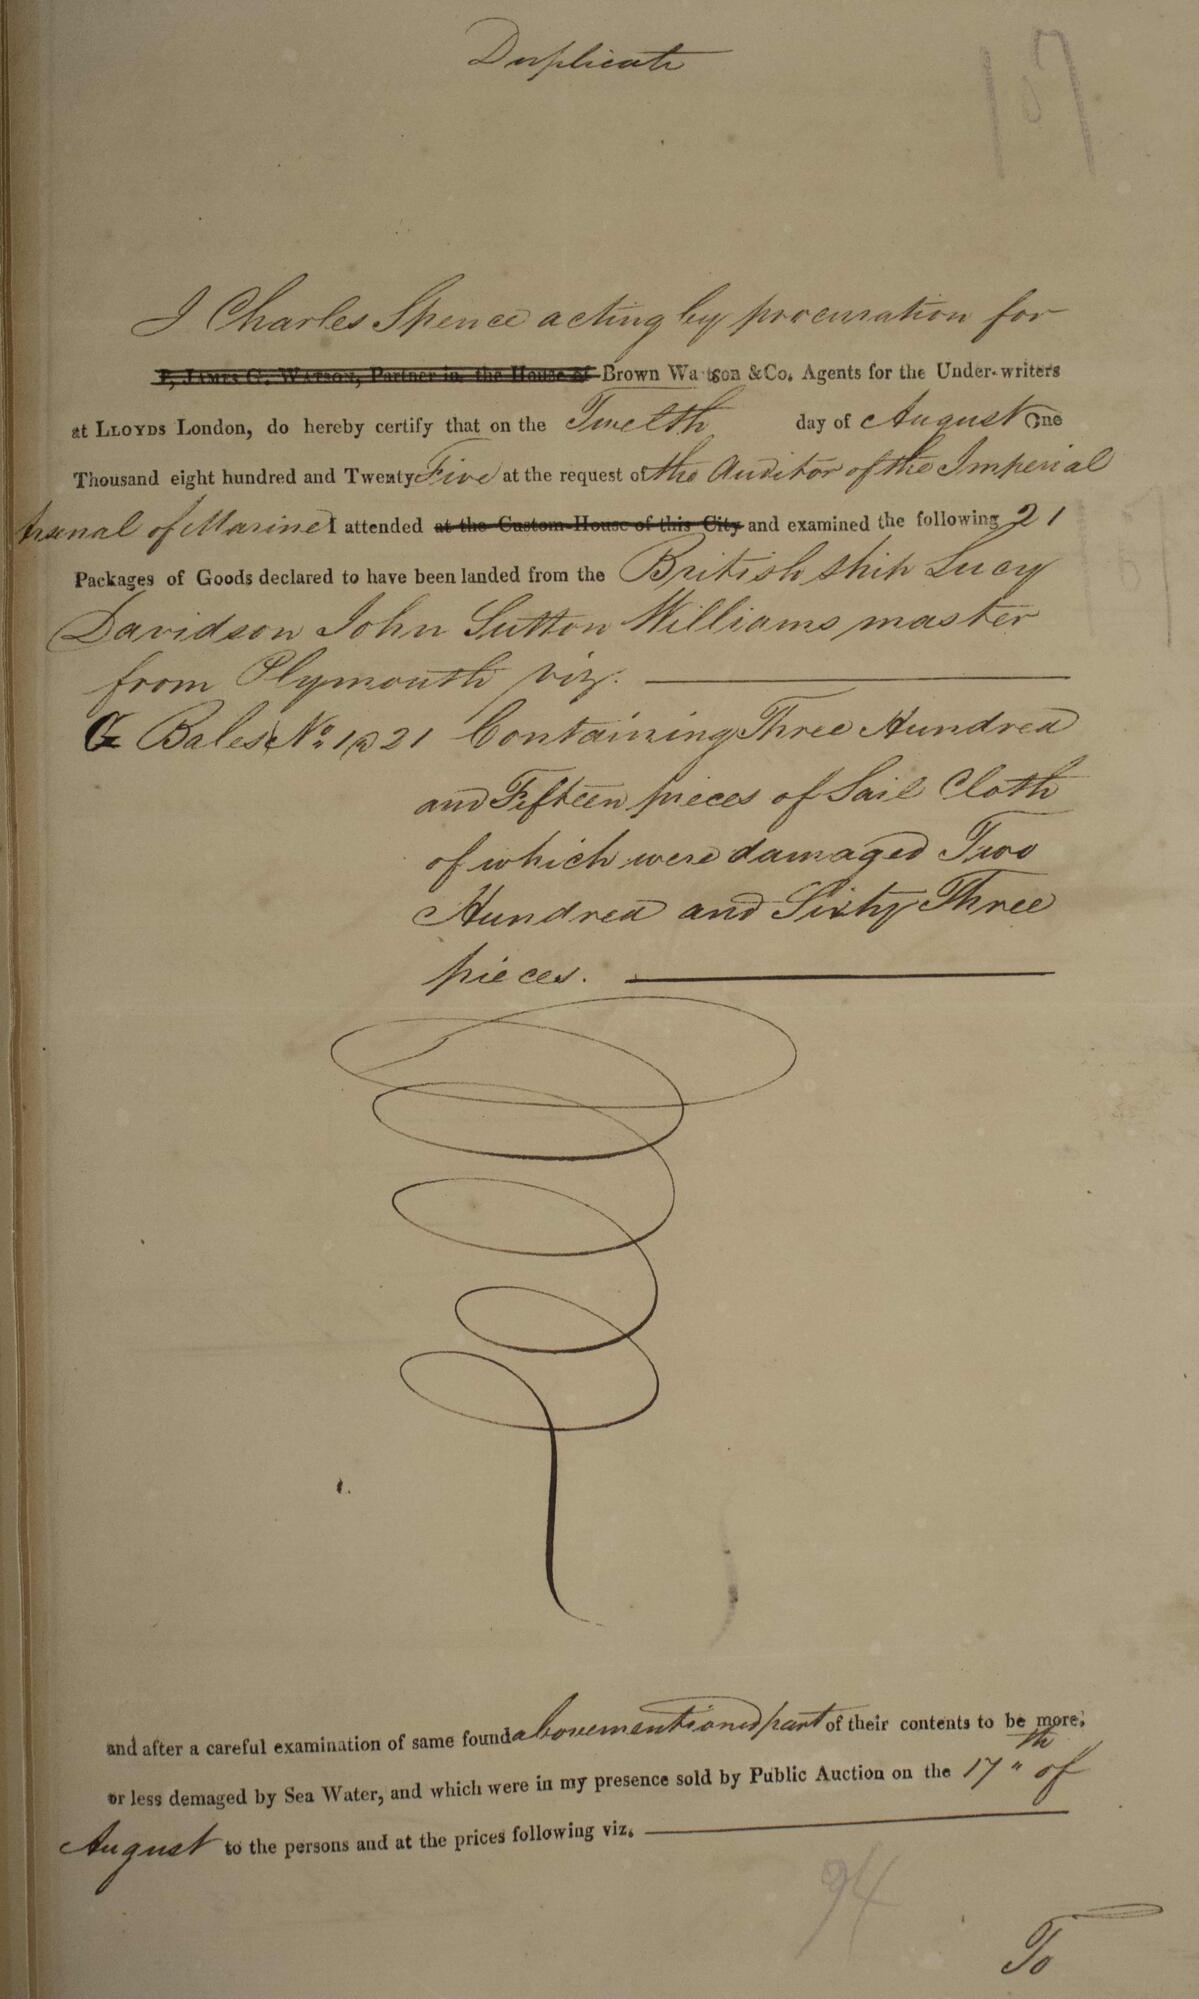 Duplicate
107
I Charles Spence acting by procuration for
I, James G. Watson, Partner in the House of Brown Watson & Co. Agents for the Under-writers
at Lloyds London, do hereby certify that on the Twelth day of August One
Thousand eight hundred and Twenty Five at the request of the Auditor of the Imperial
Arsenal of Marine I attended at the Custom-House of this City and examined the following 21
Packages of Goods declared to have been landed from the British Ship Lucy
Davidson John Sutton Williams master
from Plymouth viz.
G Bales No. 1 @ 21 Containing Three Hundred
and Fifteen pieces of Sail Cloth
of which were damaged Two
Hundred and Sixty Three
pieces.
and after a careful examination of same found abovementioned part of their contents to be more,
or less demaged by Sea Water, and which were in my presence sold by Public Auction on the 17th of
August to the persons and at the prices following viz.
94
To